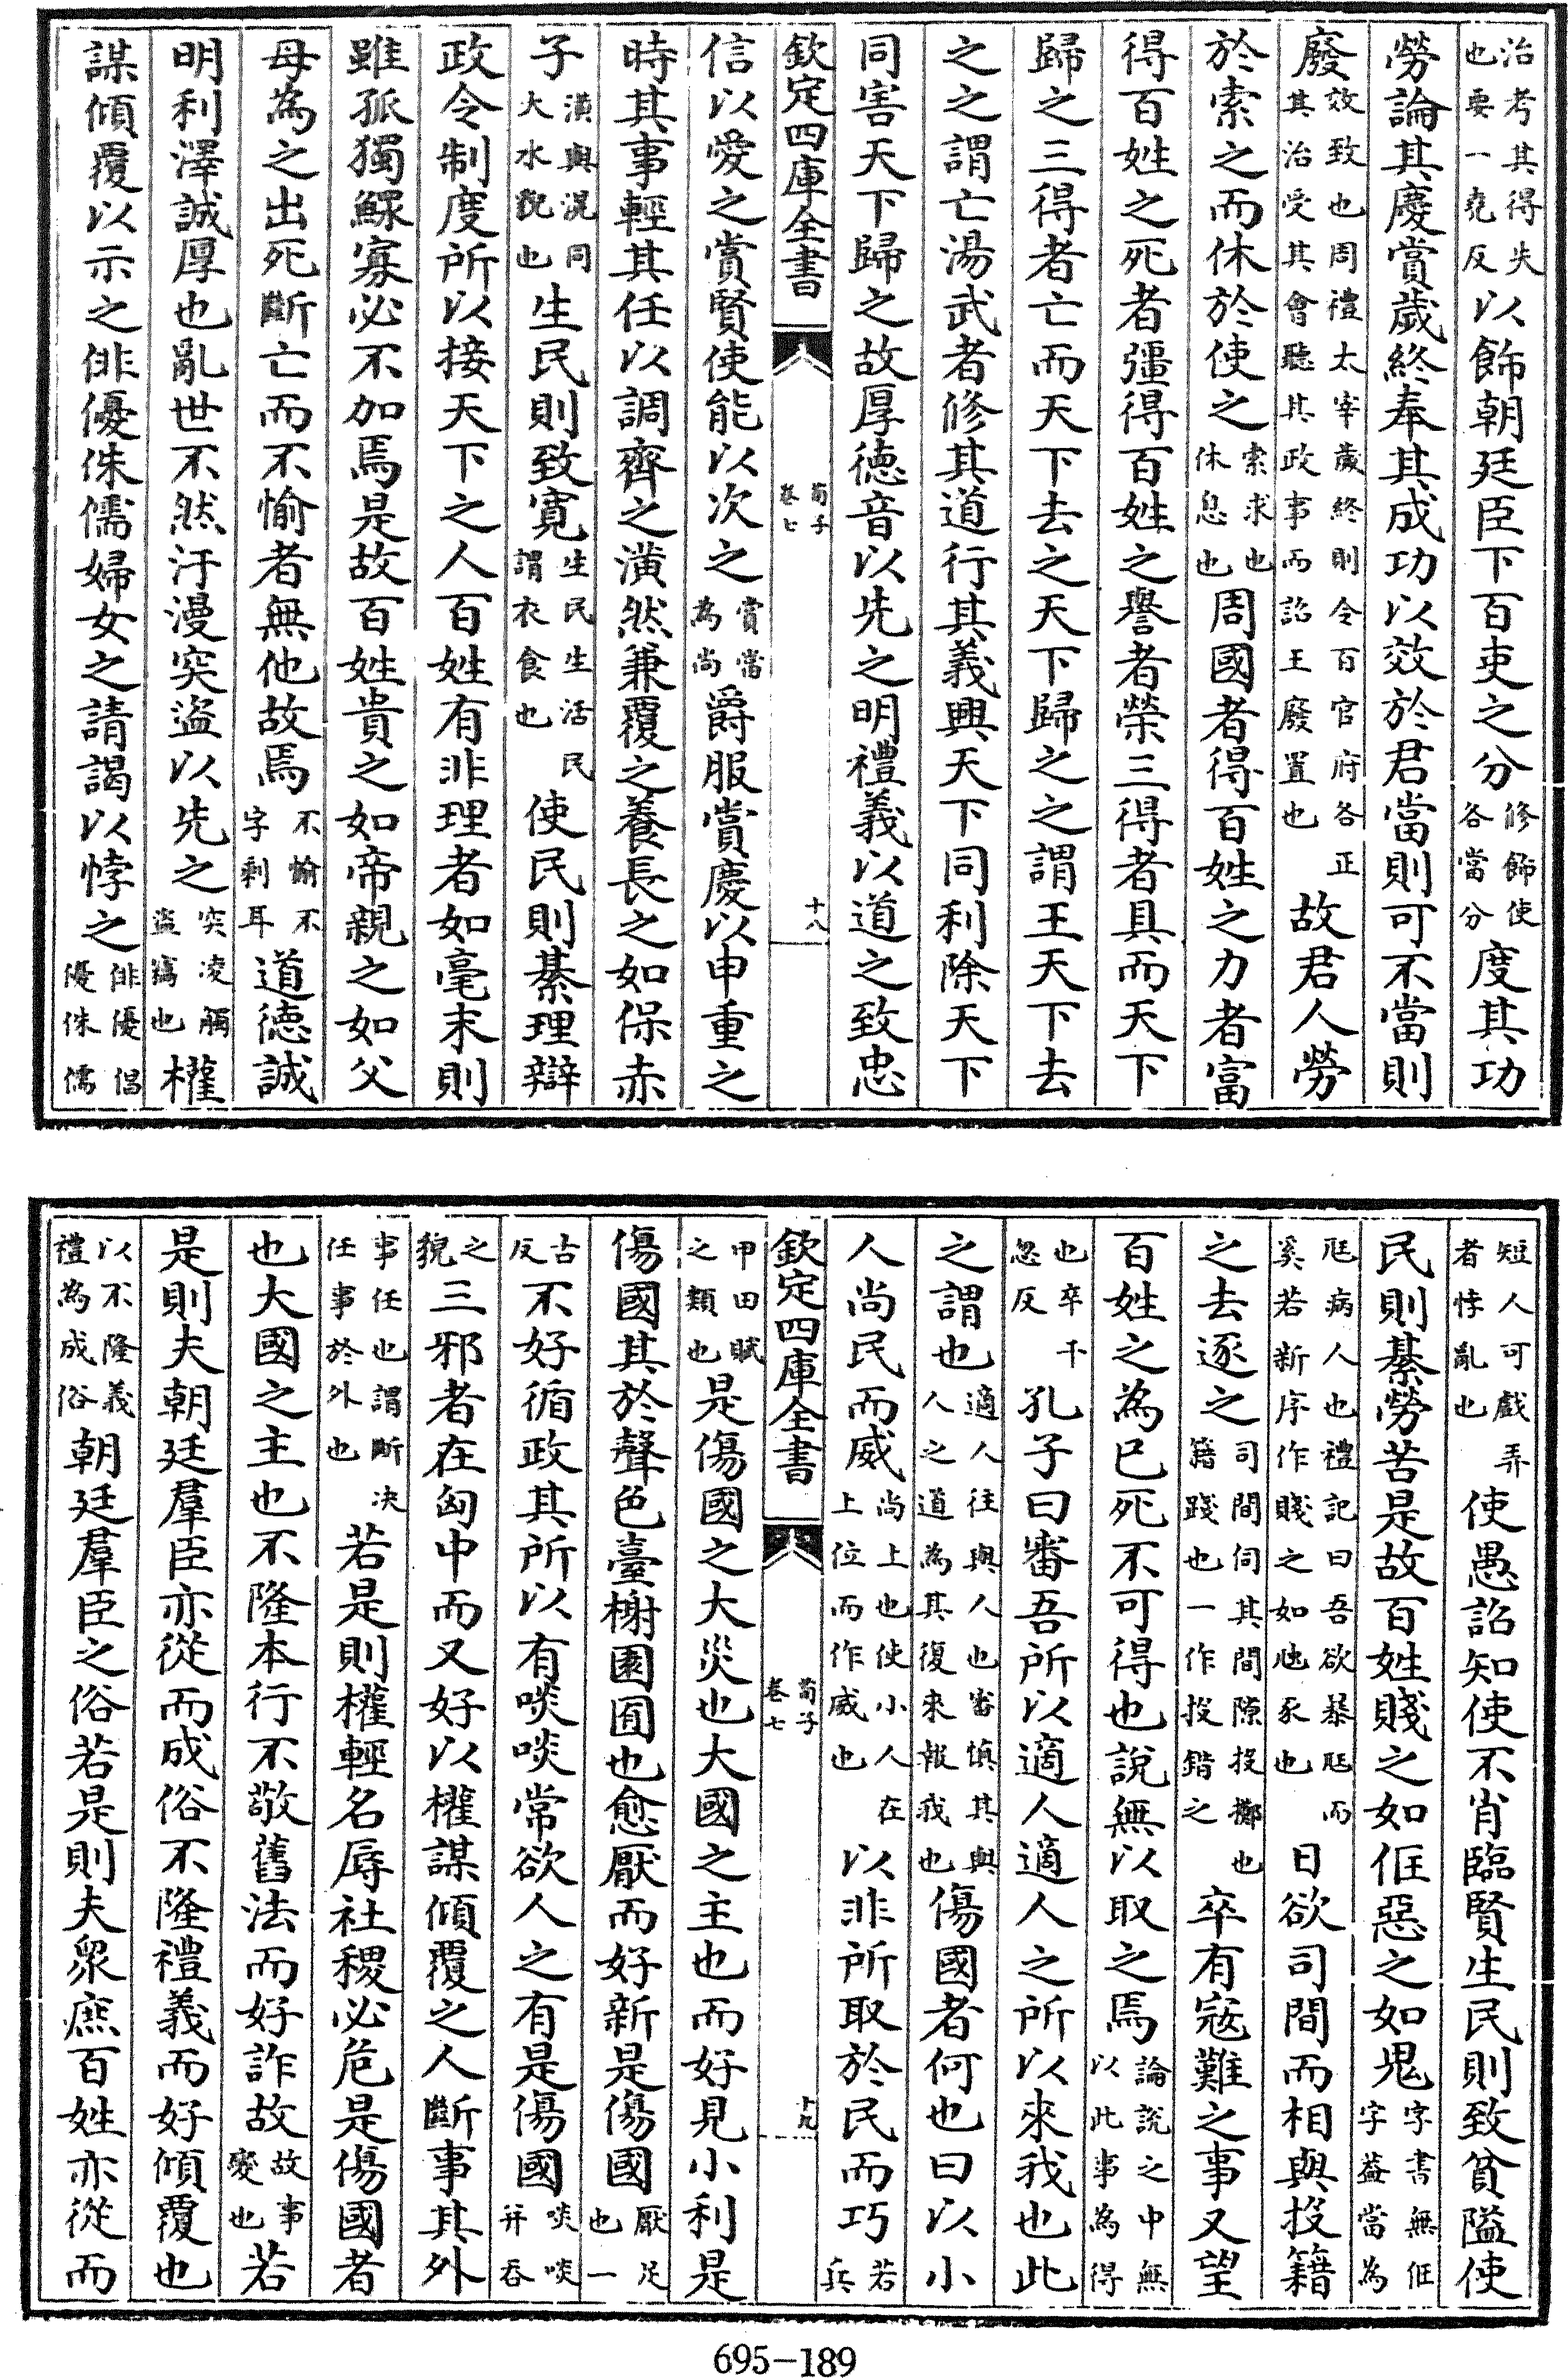 治考其得失也要一堯反以飾朝廷臣下百吏之分修飾使各當分度其功
勞論其慶賞歲終奉其成功以效於君當則可不當則
廢效致也周禮太宰歲終則令百官府各正其治受其會聽其政事而詔王廢置也故君人勞
於索之而休於使之索求也休息也周國者得百姓之力者富
得百姓之死者彊得百姓之譽者榮三得者具而天下
歸之三得者亡而天下去之天下歸之之謂王天下去
之之謂亡湯武者修其道行其義興天下同利除天下
同害天下歸之故厚德音以先之明禮義以道之致忠
欽定四庫全書 荀子卷七 十八
信以愛之賞賢使能以次之賞當為尚爵服賞慶以申重之
時其事輕其任以調齊之潢然兼覆之養長之如保赤
子潢與滉同大水貌也生民則致寬生民生活民謂衣食也使民則綦理辯
政令制度所以接天下之人百姓有非理者如毫末則
雖孤獨鰥寡必不加焉是故百姓貴之如帝親之如父
母為之出死斷亡而不愉者無他故焉不愉不字剩耳道德誠
明利澤誠厚也亂世不然汙漫突盜以先之突凌觸盜竊也權
謀傾覆以示之俳優侏儒婦女之請謁以悖之俳優倡優侏儒
短人可戲弄者悖亂也使愚詔知使不肖臨賢生民則致貧隘使
民則綦勞苦是故百姓賤之如㑌惡之如鬼字書無㑌字蓋當為
尫病人也禮記曰吾欲暴尫而奚若新序作賤之如虺豕也日欲司間而相與投籍
之去逐之司間伺其間隙投擲也籍踐也一作投錯之卒有寇難之事又望
百姓之為已死不可得也說無以取之焉論說之中無以此事為得
也卒千忽反孔子曰審吾所以適人適人之所以來我也此
之謂也適人往與人也審慎其與人之道為其復來報我也傷國者何也曰以小
人尚民而威尚上也使小人在上位而作威也以非所取於民而巧若兵
欽定四庫全書 荀子卷七 十九
甲田賦之類也是傷國之大災也大國之主也而好見小利是
傷國其於聲色臺榭園囿也愈厭而好新是傷國厭足也一
古反不好循政其所以有啖啖常欲人之有是傷國啖啖并吞
之貌三邪者在匈中而又好以權謀傾覆之人斷事其外
事任也謂斷决任事於外也若是則權輕名辱社稷必危是傷國者
也大國之主也不隆本行不敬舊法而好詐故故事變也若
是則夫朝廷羣臣亦從而成俗不隆禮義而好傾覆也
以不隆義禮為成俗朝廷羣臣之俗若是則夫衆庶百姓亦從而
695-189